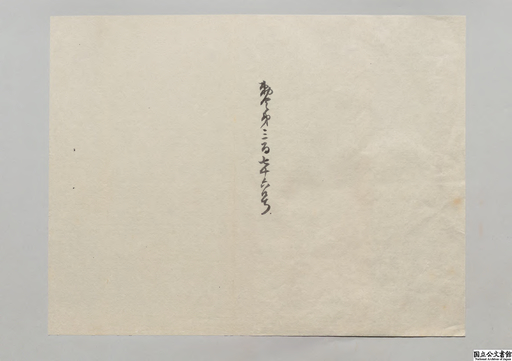 勅令第三百七十六号
国立公文書館
National Archives of Japan